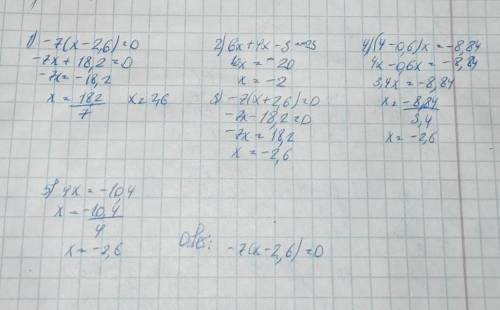 1) -7(x-2,6)=0
-7x+18,2=0
-7x=-18,2
x=18,2/7 x=2,6
2) 6x+4x-5=-25
10x=-20
x=-2
3) -7(x+2,6)=0
-7x-18,2=0
-7x=18,2
x=-2,6
4) (4-0,6)x=-8,84
4x-0,6x=-8,84
3,4x=-8,84
x=-8,84/3,4
x=-2,6
5) 4x=-10,4
x=-10,4/4
x=-2,6
Отв: -7(x-2,6)=0